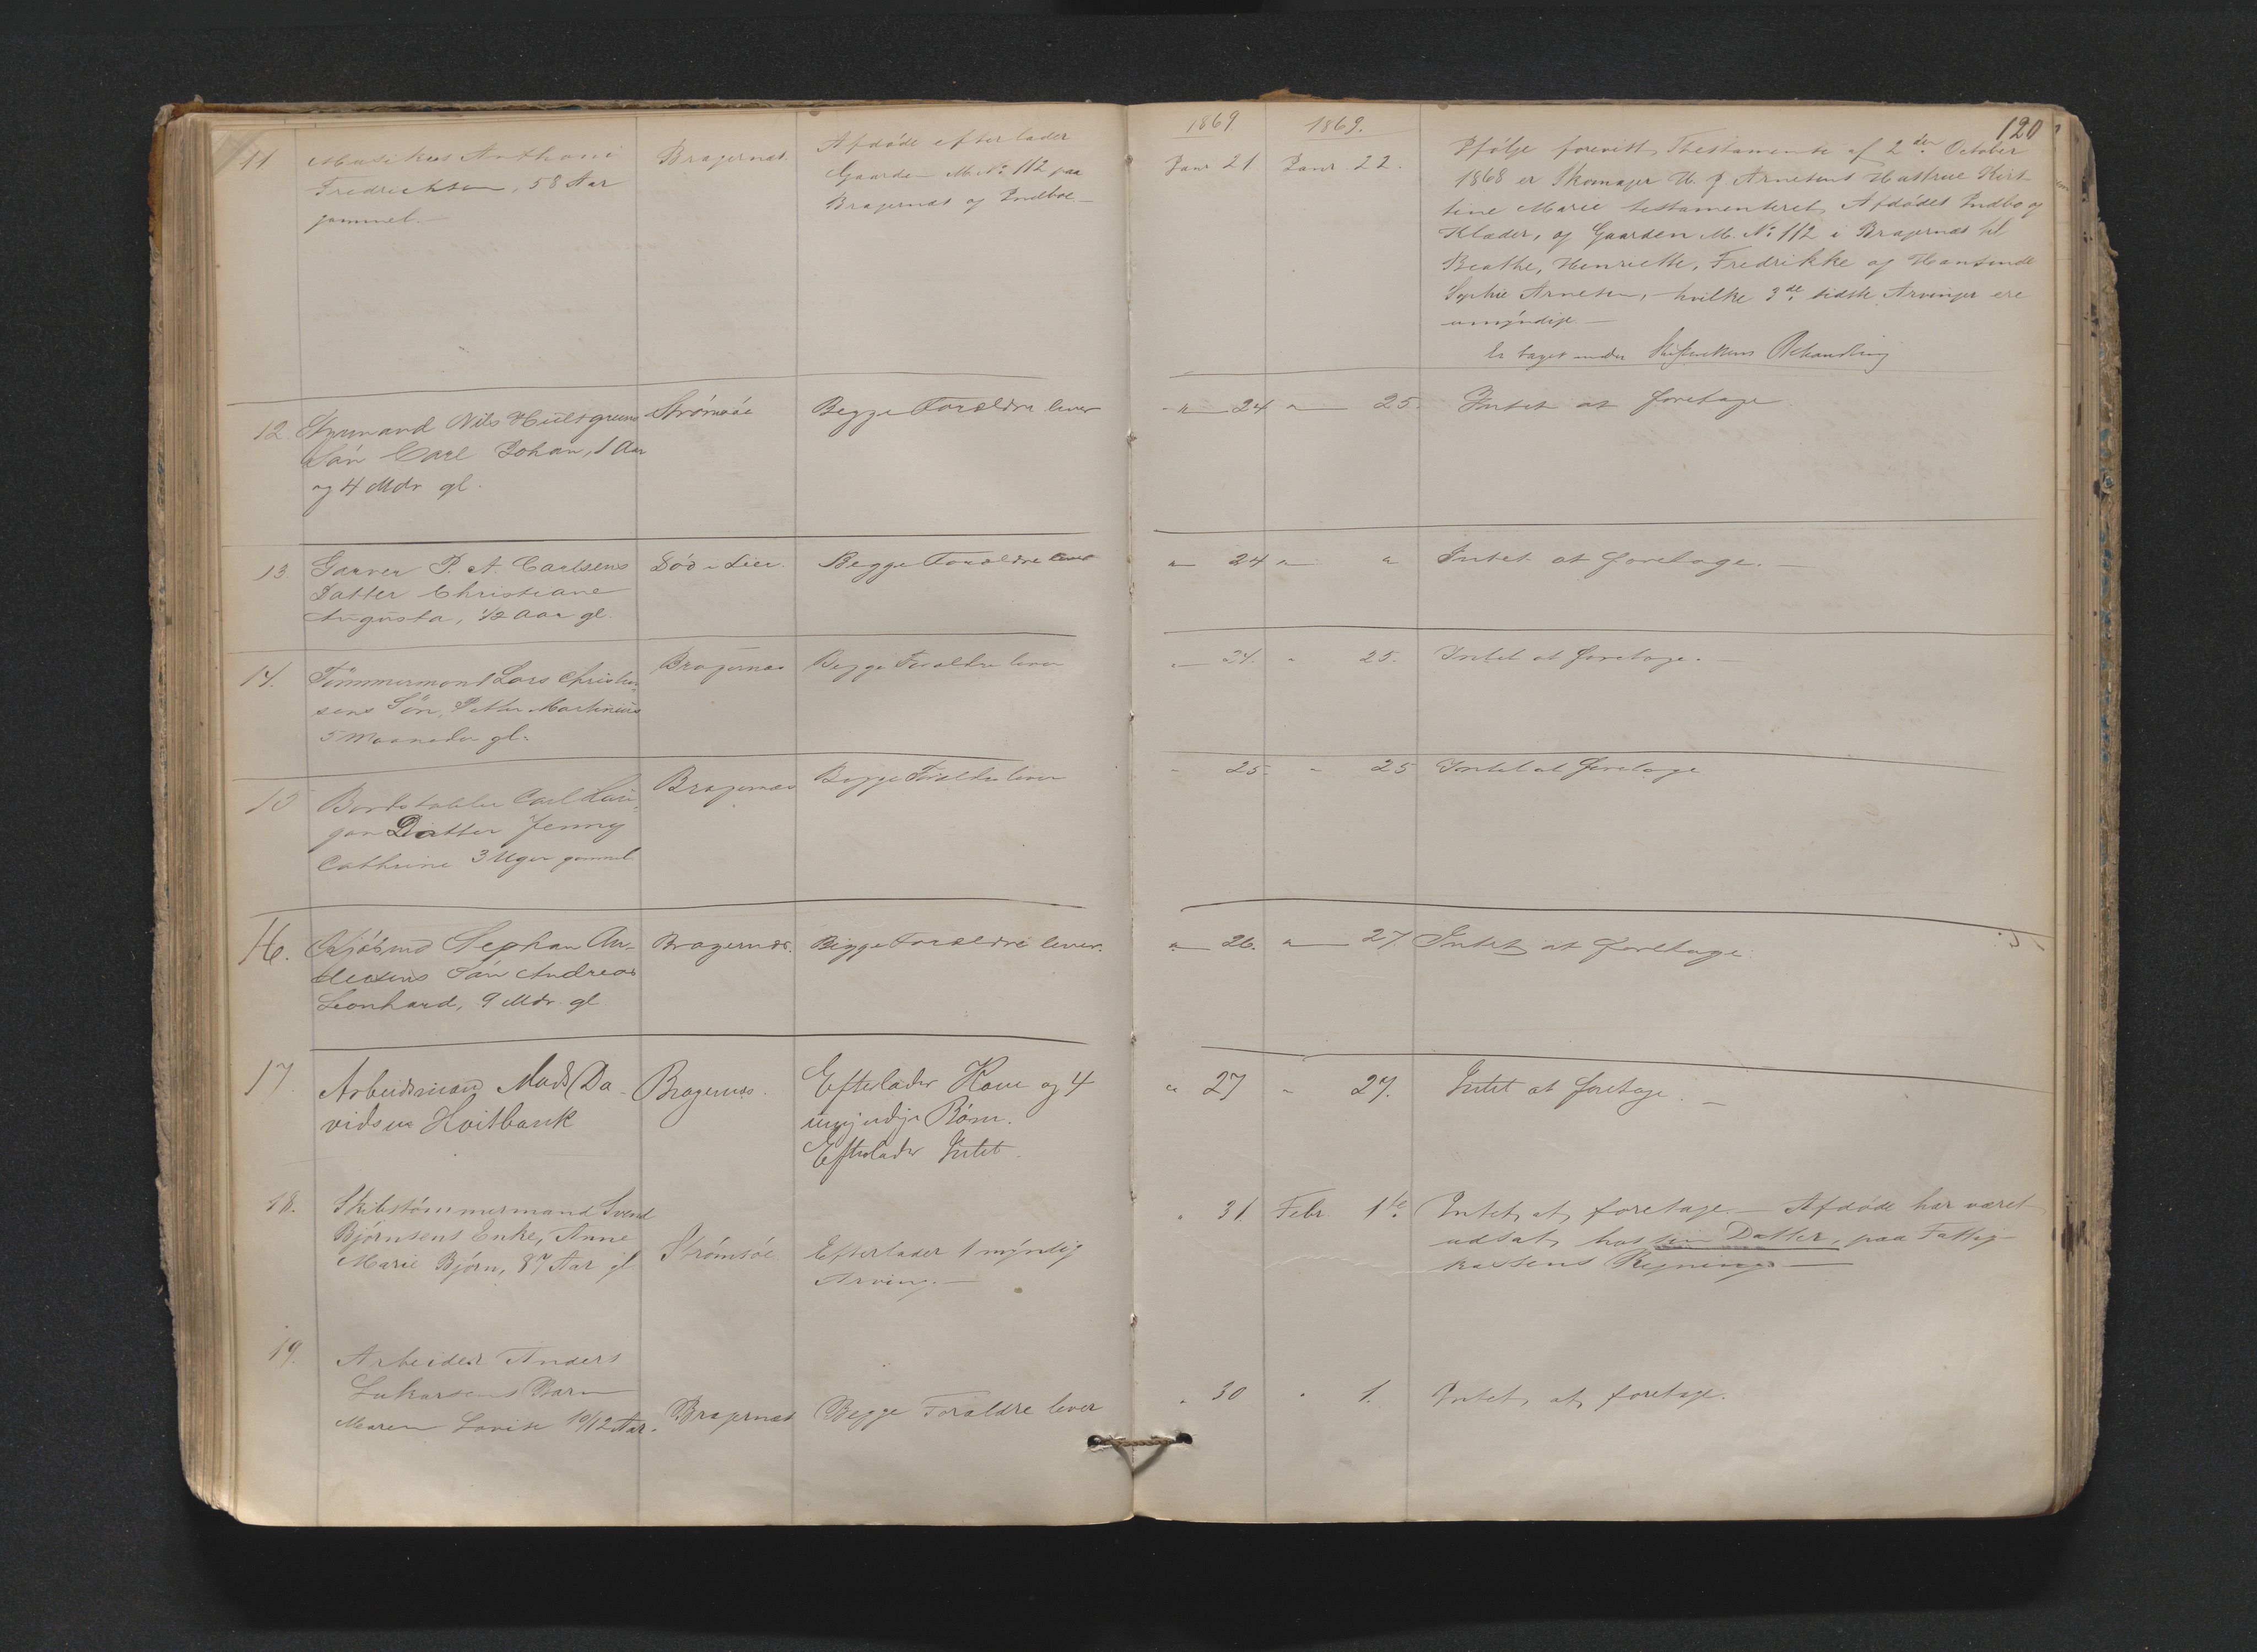 120
1869. 1869.
11 Musikus Anthoni
Fredricksen, 58 Aar
gammel. —
Bragernæs.
Afdøde efterlader
Gaarden M. No 112 paa
Bragernæs og Indboe. —
Janr 21. Janr 22.
Ifølge forevist Thestamente af 2den October
1868 er Skomager H. J. Arnesens Hustrue Kirs-
tine Marie testamenteret Afdødes Indbo og
Klæder, og Gaarden M. No 112 i Bragernæs til
Beathe, Henriette, Fredrikke og Hansine
Sophie Arnesen, hvilke 3de sidste Arvinger ere
umÿndige —
Er taget under Skifterettens Behandling
12. Styrmand Nils Hültgreens
Søn Carl Johan, 1 Aar
og 4 Mdr gl.
Strømsøe
Begge Forældre lever
" 24 " 25.
Intet at foretage.
13. Garver P. A. Carlsens
Datter Christiane
Augusta, 1/2 Aar gl.
Død i Lier.
Begge Forældre lever
" 24 " "
Intet at foretage. —
14. Tømmermand Lars Christen-
sens Søn, Petter Martinius
5 Maaneder gl.
Bragernæs
Begge Forældre lever
" 24. " 25.
Intet at foretage. —
15 Bordstabler Carl
Datter Jenny
Cathrine 3 Uger gammel.
Bragernæs
Begge Forældre lever
" 25. " 25
Intet at foretage
16. Sjømd Stephan An-
dersens Søn Andreas
Leonhard, 9 Mdr. gl
Bragernæs.
Begge Forældre lever.
" 26. " 27.
Intet at foretage.
17. Arbeidsmand Mads Da-
vidsen Hvitbank
Bragernæs.
Efterlader Kone og 4
umyndige Børn.
Efterlader Intet.
" 27 " 27.
Intet at foretage. —
18. Skibstømmermand Svend
Bjørnsens Enke, Anne
Marie Bjørn, 87 Aar gl
Strømsöe
Efterlader 1 mÿndig
Arving. —
" 31. Febr. 1te
Intet at foretage. — Afdøde har været
udsat hos sin Datter, paa Fattig-
kassens Regning —
19. Arbeider Anders
Lukassens Barn
Maren Lovise 10/12 Aar.
Bragernæs
Begge Forældre lever
" 30 " 1.
Intet at foretage.